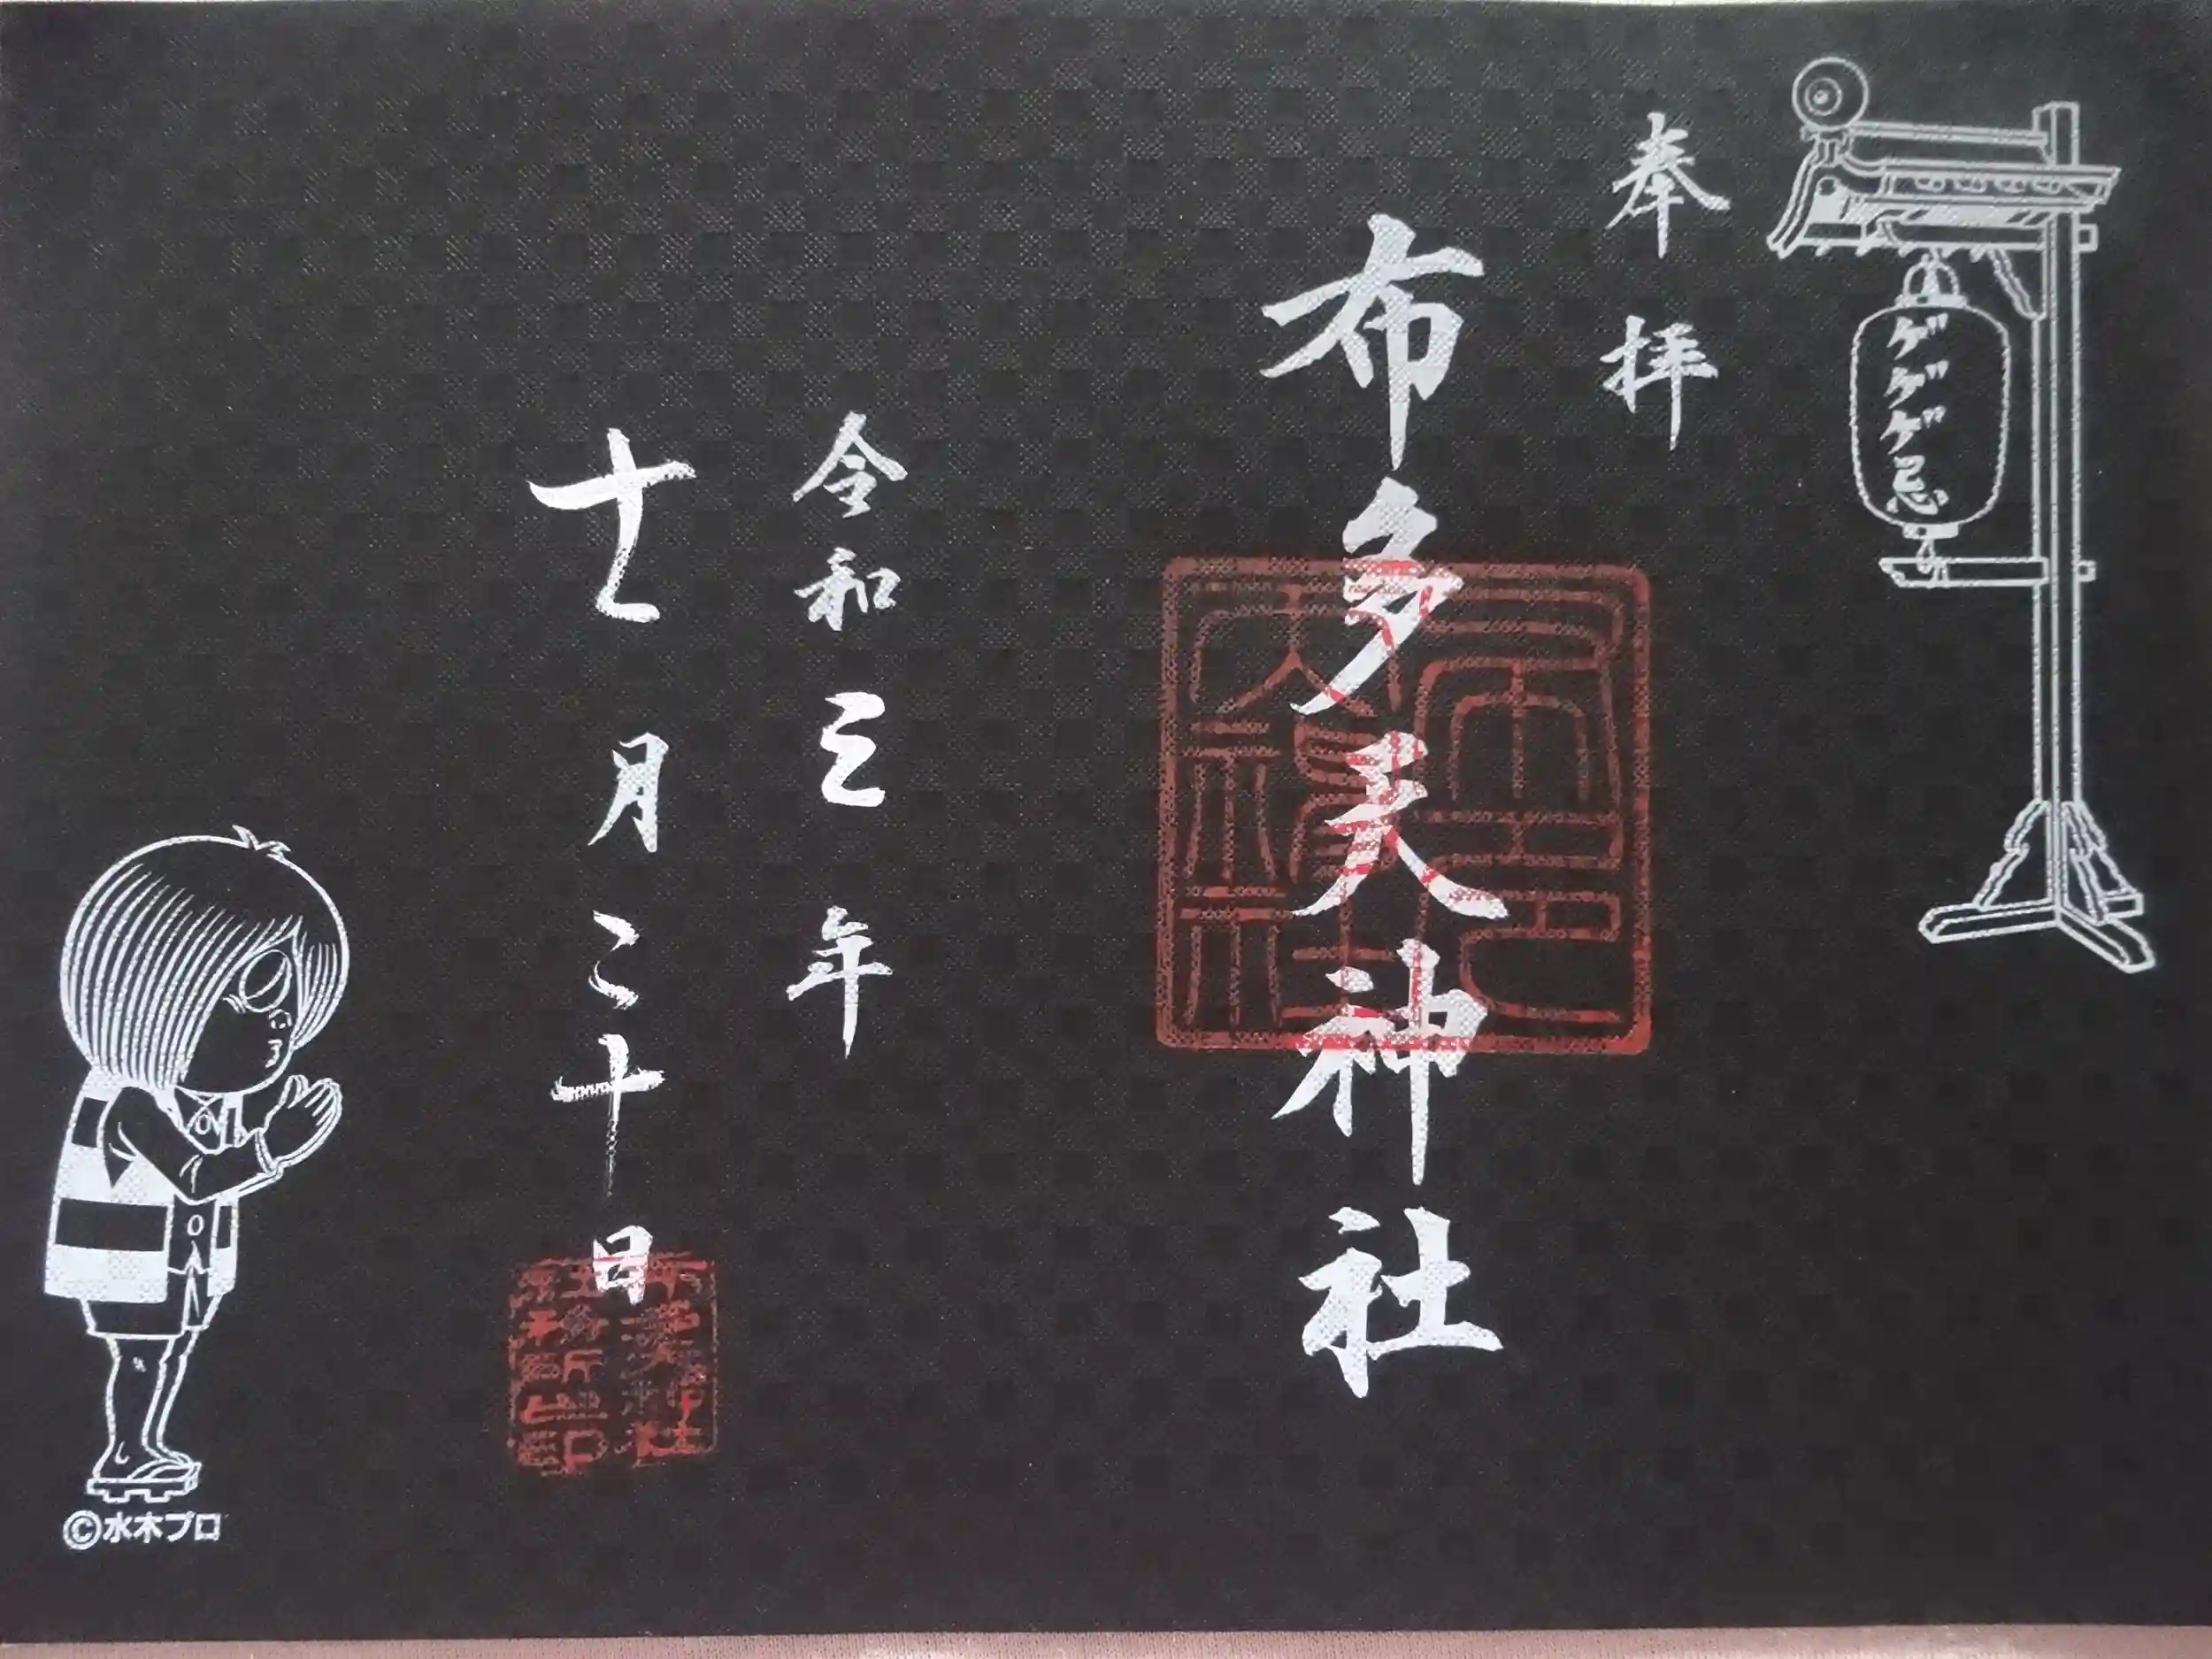 ゲゲゲ忌
奉拝
布多天神社
令和三年
十一月二十日
©水木プロ